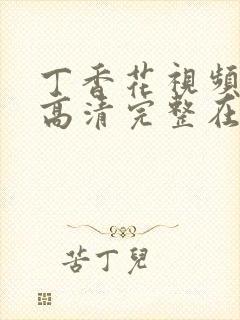 丁香花視頻
高清完整在
苦丁兒